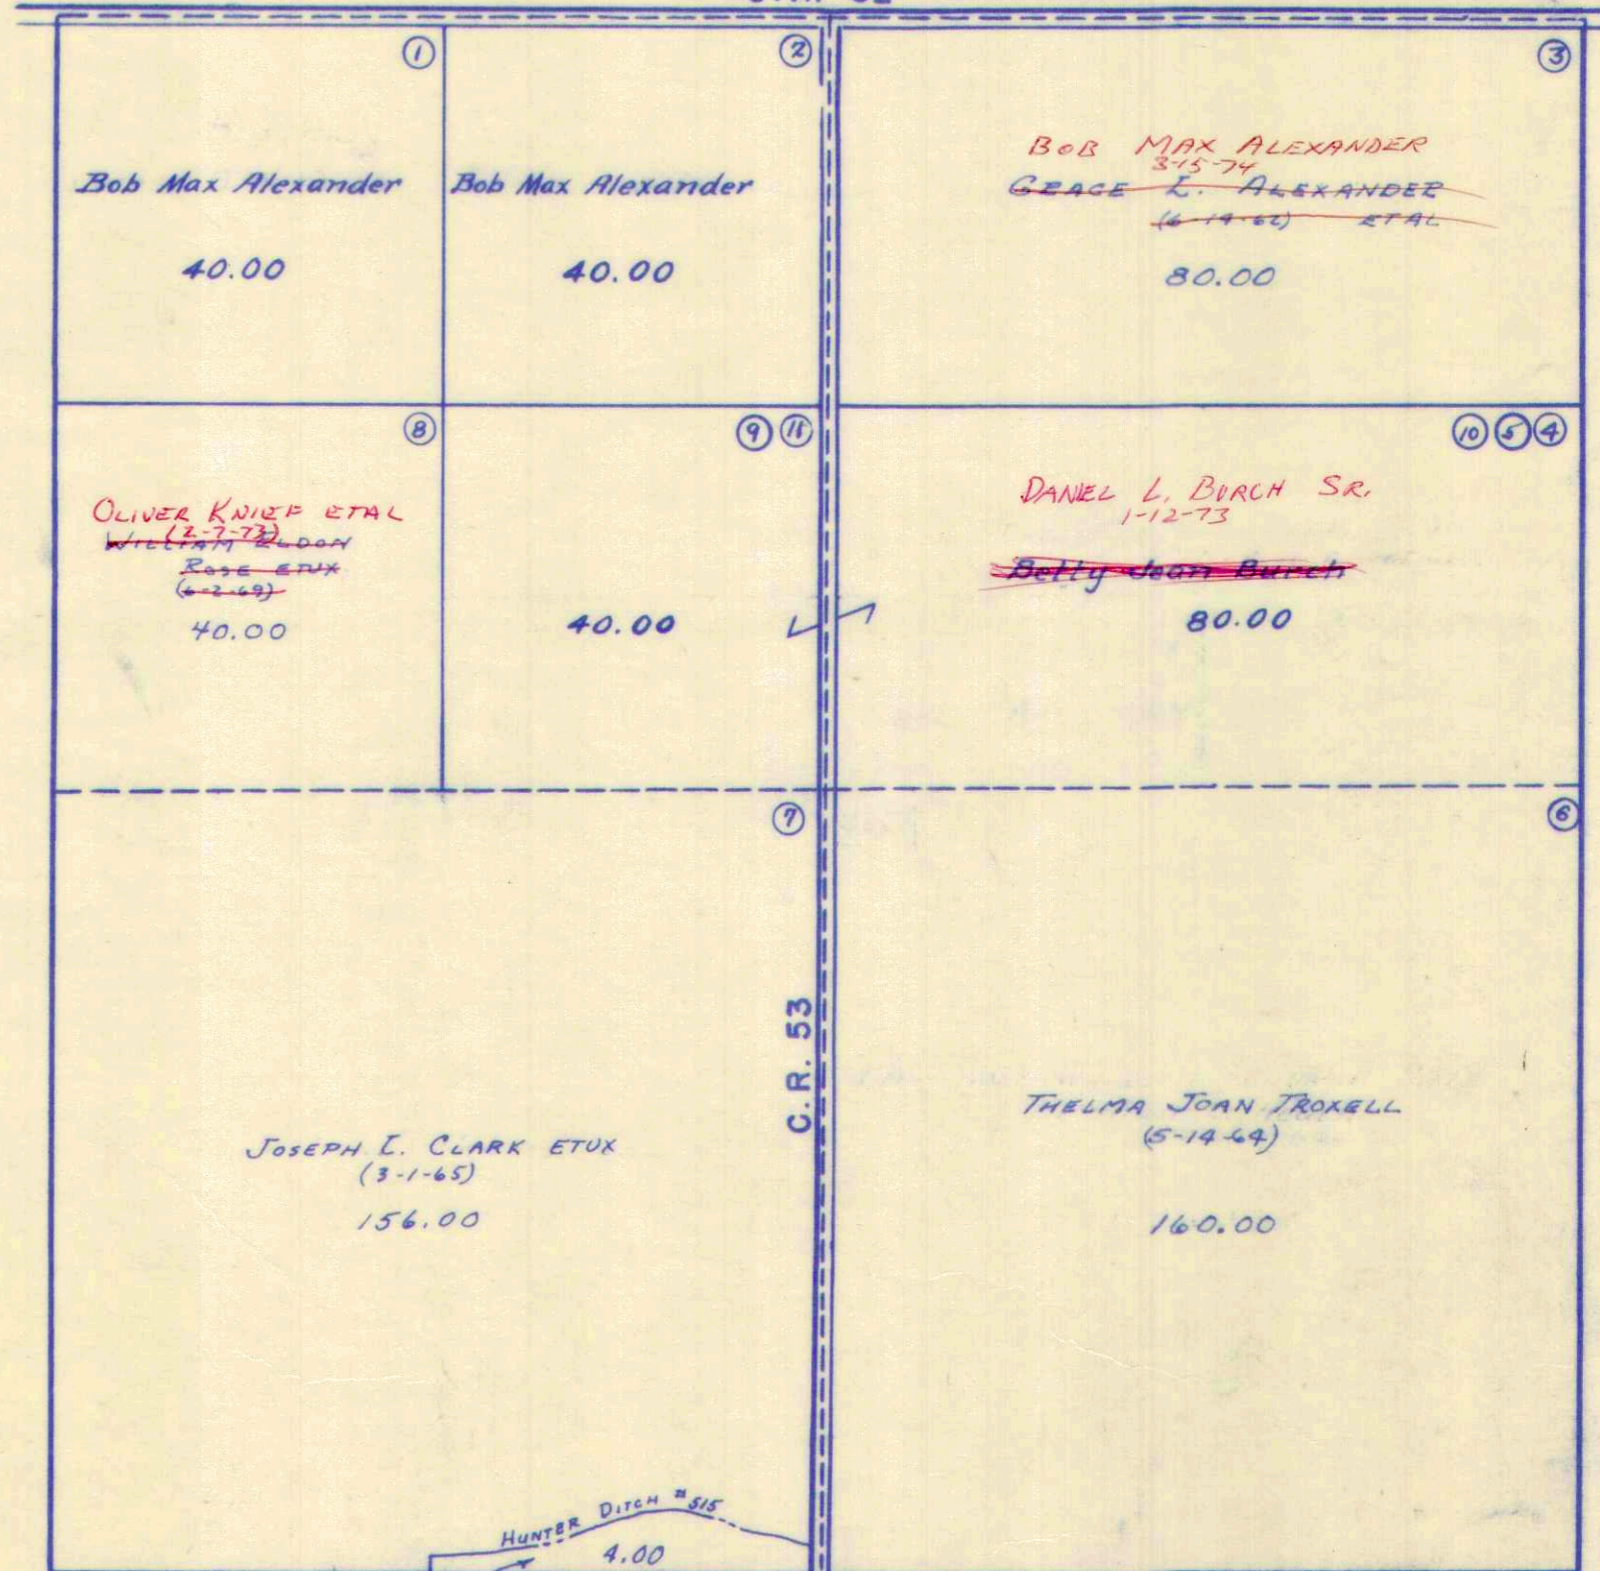 ①
Bob Max Alexander
40.00
②
Bob Max Alexander
40.00
③
BOB MAX ALEXANDER
3-15-74
GRACE L. ALEXANDER
(6-19-62) ETAL
80.00
⑧
OLIVER KNIEF ETAL
(2-7-73)
WILLIAM ELDON
ROSE ETUX
(6-2-69)
40.00
⑨ ⑪
40.00
⑩ ⑤ ④
DANIEL L. BURCH SR.
1-12-73
Betty Jean Burch
80.00
⑦
C.R. 53
JOSEPH L. CLARK ETUX
(3-1-65)
156.00
HUNTER DITCH #515
4.00
⑥
THELMA JOAN TROXELL
(5-14-64)
160.00